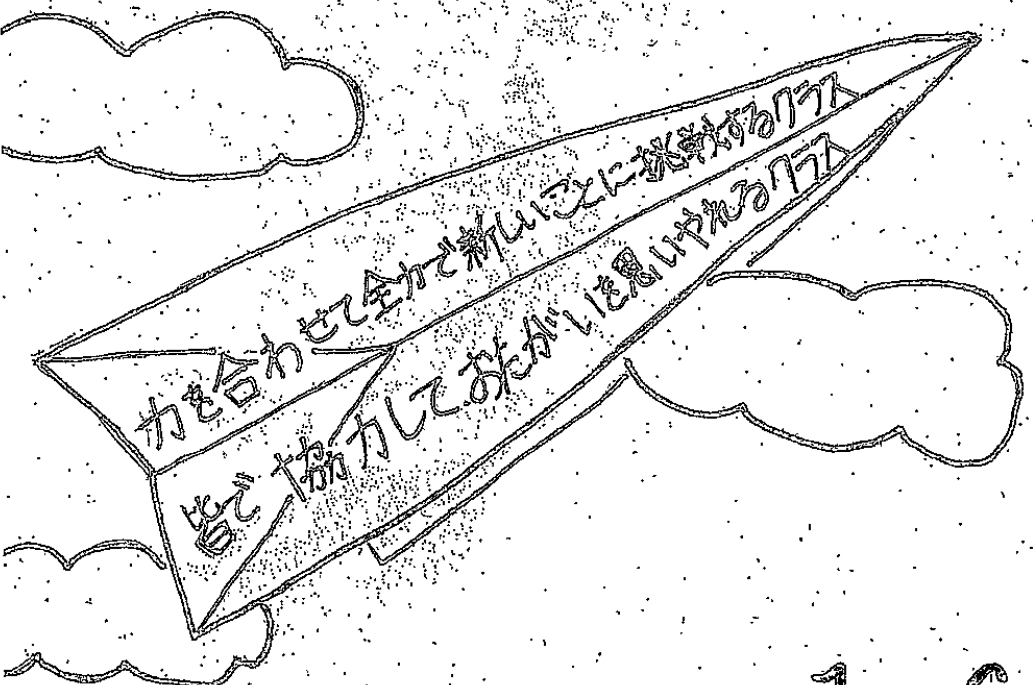 力を合わせて全力で新しいことに挑戦するクラス
皆で協力しておたがいを思いやれるクラス